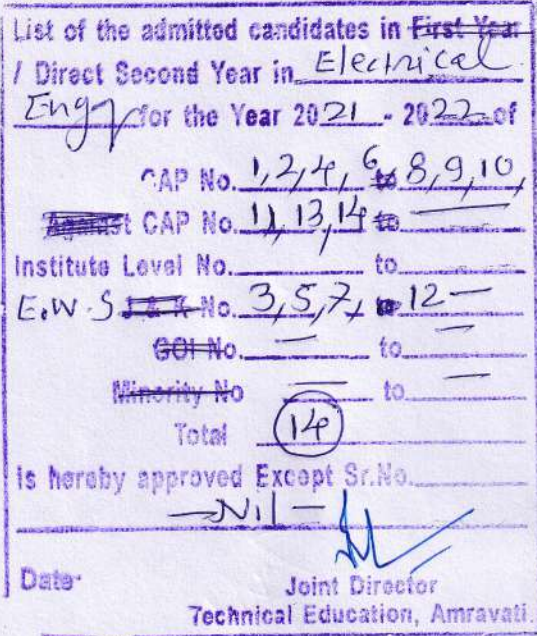 List of the admitted candidates in First Year
/ Direct Second Year in Electrical
Engg for the Year 2021 - 2022 of
CAP No. 1,2,4, 6 to 8,9,10,
Against CAP No. 11,13,14 to —
Institute Level No. to
E.W.S J & K No. 3,5,7, to 12 —
GOI No. — to —
Minority No — to —
Total 14
is hereby approved Except Sr.No.
— Nil —
Date
Joint Director
Technical Education, Amravati.